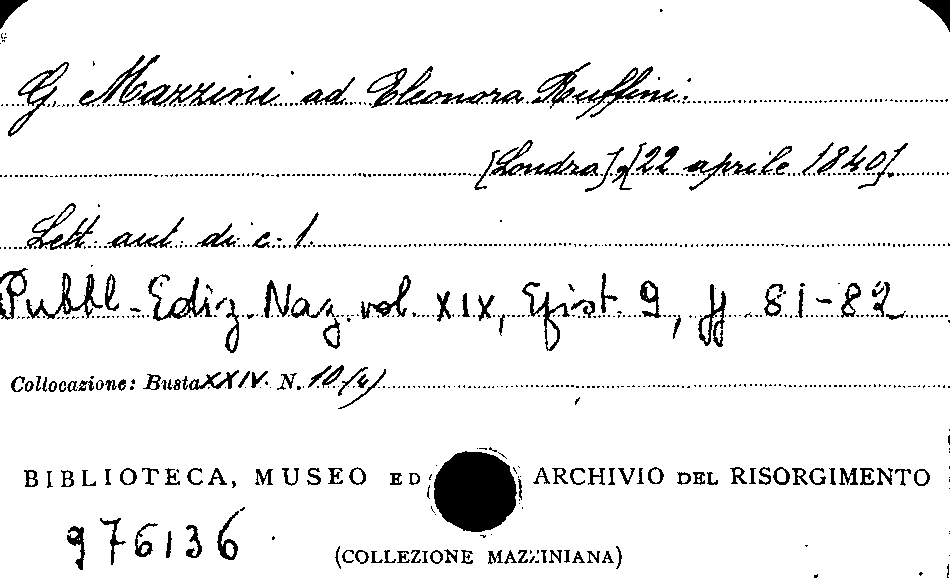 G. Mazzini ad Eleonora Ruffini.
[Londra], [22 aprile 1840].
Lett. aut. di c. 1.
Pubbl. Ediz. Naz. vol. XIX, Epist. 9, pp. 81-82
Collocazione: Busta XXIV N. 10 (4)
BIBLIOTECA, MUSEO ED ARCHIVIO DEL RISORGIMENTO
976136
(COLLEZIONE MAZZINIANA)